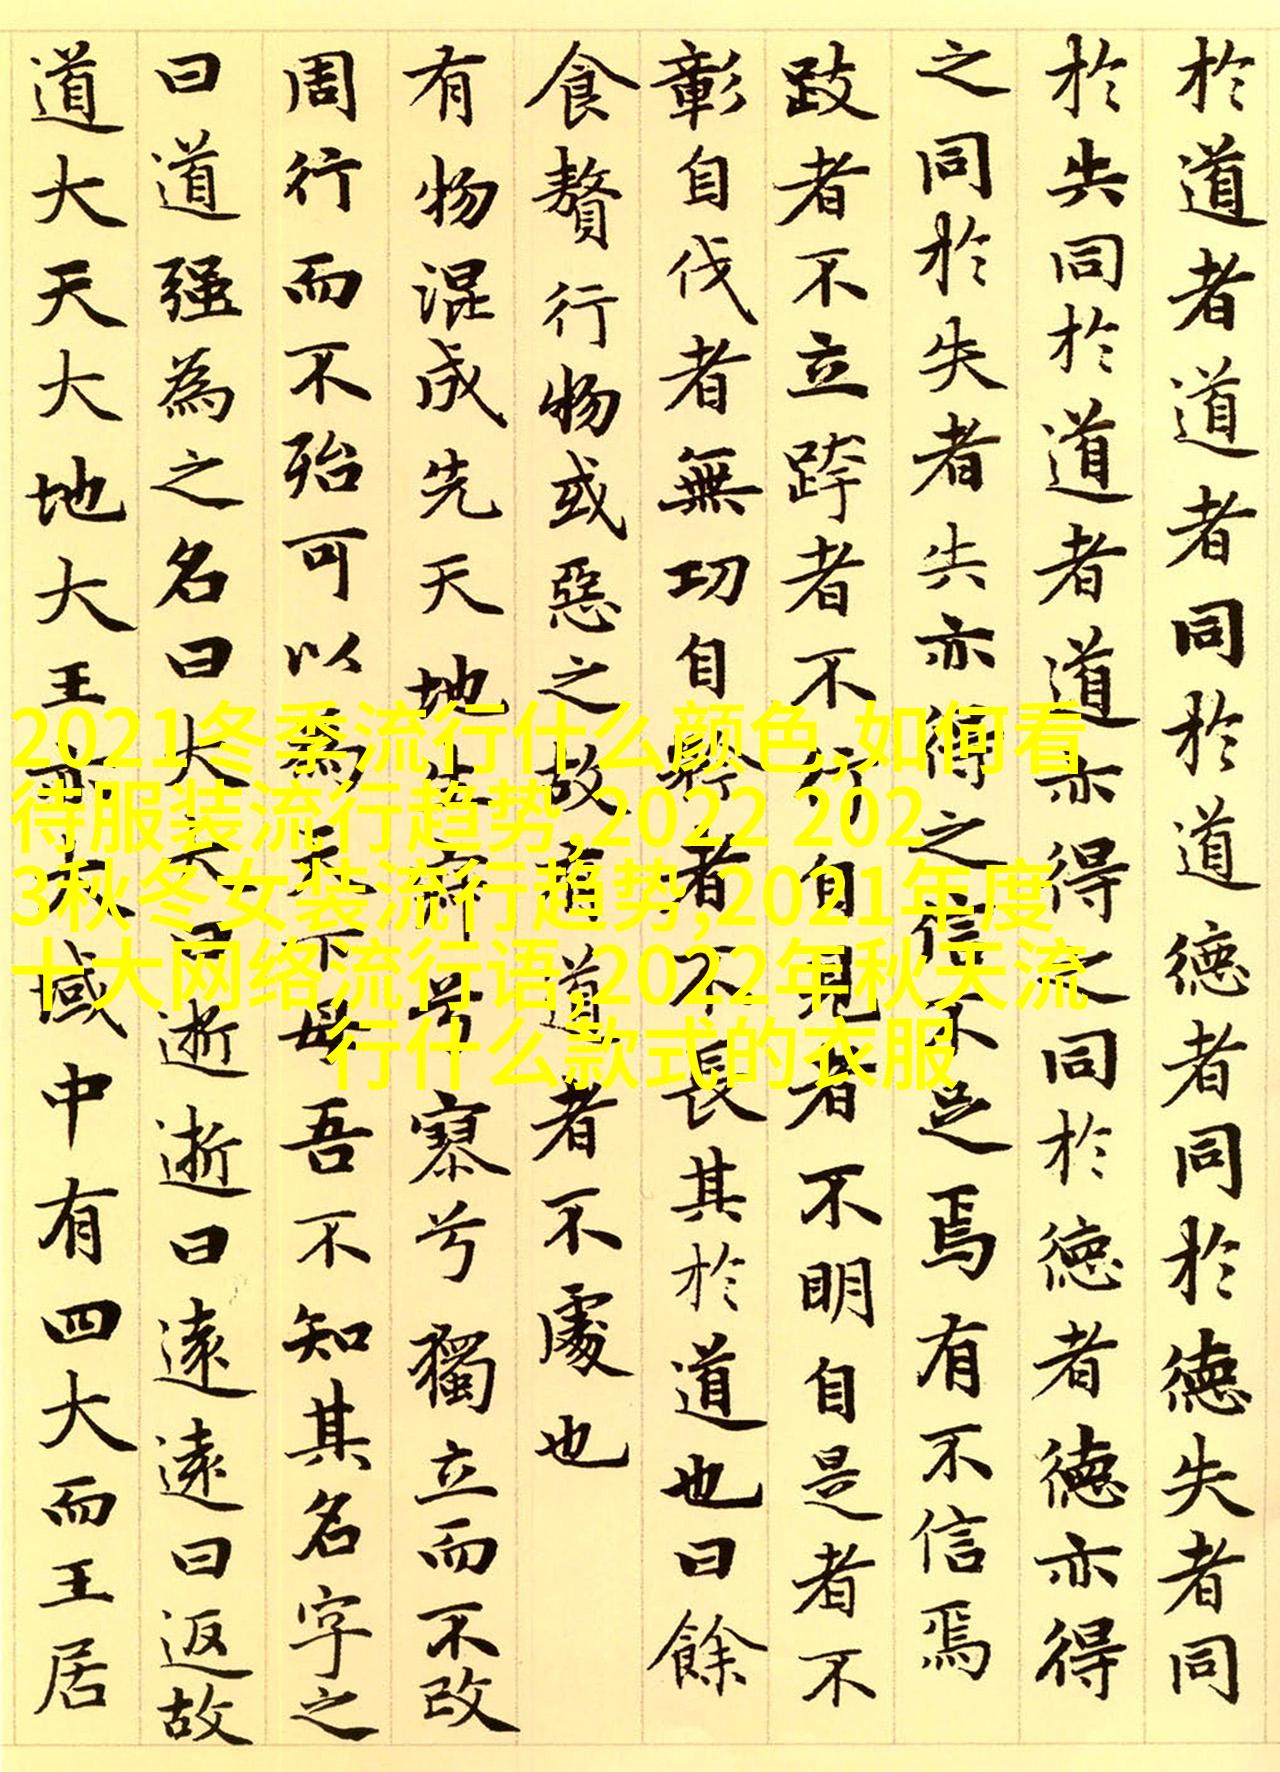 於道者道者同於道德者同於德失者同
於失同於道者道亦得之同於德者德亦得
之同於失者失亦得之信不足焉有不信焉
跂者不立跨者不行自見者不明自是者不
彰自伐者無功自矜者不長其於道也曰餘
食贅行物或惡之故有道者不處也
有物混成先天地生寂兮寥兮獨立而不改
周行而不殆可以為天下母吾不知其名字之
曰道强為之名曰大大曰逝逝曰遠遠曰返故
道大天大地大王亦大域中有四大而王居
2021冬季流行什么颜色,如何看
待服装流行趋势,2022 202
3秋冬女装流行趋势,2021年度
十大网络流行语,2022年秋天流
行什么款式的衣服